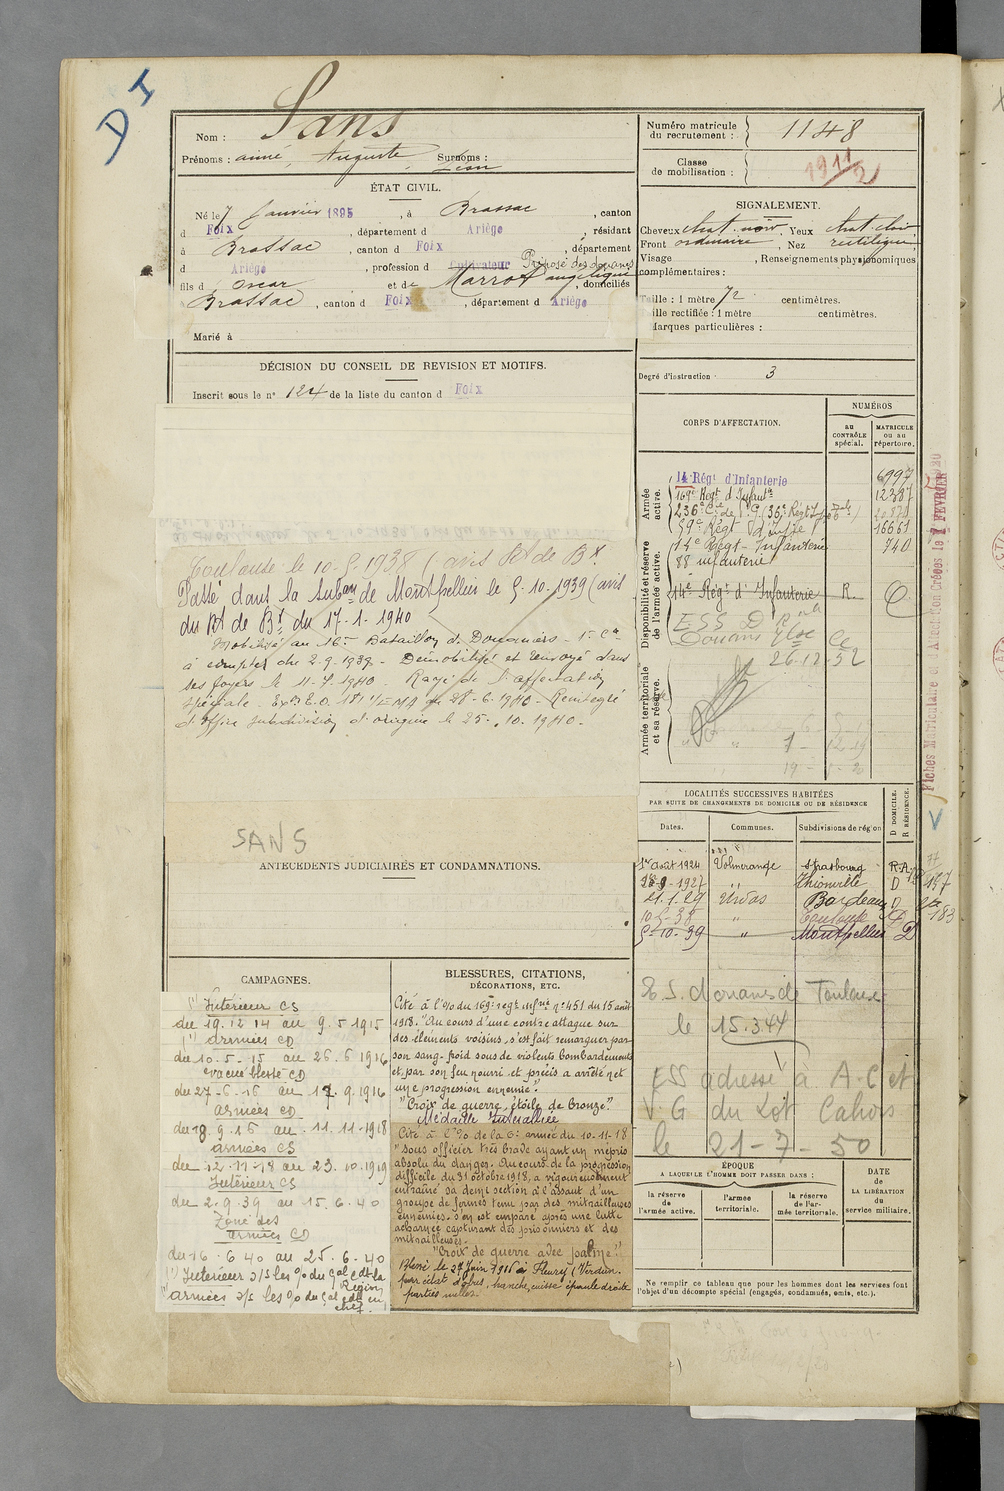 D I
Nom : Sans
Prénoms : aimé, Auguste, Surnoms :
Léon
ÉTAT CIVIL.
Né le 7 Janvier 1895, à Brassac, canton
d Foix, département d Ariège, résidant
à Brassac, canton d Foix, département
d Ariège, profession d Cultivateur Préposé des douanes
fils d Oscar et de Marrot angélique, domiciliés
Brassac, canton d Foix, département d Ariège
Marié à
DÉCISION DU CONSEIL DE REVISION ET MOTIFS.
Inscrit sous le n° 124 de la liste du canton d Foix
Toulouse le 10.5.1938 (avis Bt de Bx.
Passé dans la Subon de Montpellier le 5.10.1939 (avis
du Bt de Bt du 17.1.1940
Mobilisé au 16e Bataillon de Douaniers - 1e Cie
à compter du 2.9.1939. - Démobilisé et renvoyé dans
ses foyers le 11-7.1940 Rayé de l'affectation
spéciale. 28-6.1940 - Réintégré
subdivision d'origine le 25-.10.1940-
SANS
ANTÉCÉDENTS JUDICIAIRES ET CONDAMNATIONS.
CAMPAGNES.
Intérieur CS
du 19.12 14 au 9.5 1915
armées CD
du 10.5.15 au 26.6 1916
évacué blessé CD
du 27-6-16 au 17.9.1916
armées CD
du 18 9.16 au .11.11-1918
armées CS
du 12-11-18 au 23.10.1919
Intérieur CS
du 2.9.39 au 15.6.40
Zone des
armées CD
du 16.6 40 au 25.6-40
Intérieur s/s les %du Gal Cdt la
Région
armées s/s les %du Gal Cdt en
chef.
BLESSURES, CITATIONS,
DÉCORATIONS, ETC.
Cité à l'% du 169e regt infrie n°451 du 15 août
1918. "Au cours d'une contre attaque sur
des éléments voisins, s'est fait remarquer par
son sang-froid sous de violents bombardements
et par son feu nourri et précis a arrêté net
une progression ennemie".
"Croix de guerre, étoile de bronze".
Médaille Interalliée
Cité à l'% de la 6e armée du 10-11-18
"sous officier très brave ayant un mépris
absolu du danger. Au cours de la progression
difficile du 31 octobre 1918, a vigoureusement
entraîné sa demi section à l'assaut d'un
groupe de fermes tenu par des mitrailleuses
ennemies. S'en est emparé après une lutte
acharnée capturant des prisonniers et des
mitrailleuses.
"Croix de guerre avec palme."
Blessé le 27 Juin 1916 à Fleury (Verdun.
par éclat d'obus, hanche, cuisse épaule droite
parties molles.
Numéro matricule
du recrutement : 1148
Classe
de mobilisation : 1911/2
SIGNALEMENT.
Cheveux chat. noir Yeux chat clair
Front ordinaire, Nez rectiligne
Visage, Renseignements physionomiques
complémentaires :
Taille : 1 mètre 72 centimètres.
Taille rectifiée : 1 mètre centimètres.
Marques particulières :
Degré d'instruction 3
CORPS D'AFFECTATION.
NUMÉROS
au
CONTRÔLE
spécial.
MATRICULE
ou au
répertoire.
Armée
active.
14 Régt d'Infanterie 6997
169e Regt d'Infantie 12387
59e Régt d'Infie 16661
14e Régt - Infanterie 740
88 infanterie
Disponibilité et réserve
de l'armée active.
14e Régt d'Infanterie R.
26-12-52
Armée territoriale
et sa réserve.
LOCALITÉS SUCCESSIVES HABITÉES
PAR SUITE DE CHANGEMENTS DE DOMICILE OU DE RÉSIDENCE
Dates. Communes. Subdivisions de région
D DOMICILE.
R RÉSIDENCE.
1er août 1924 Volmerange Strasbourg R.A
28 9-1927 " Thionville D
21.1.29 Urdos Bordeaux D
10-5-38 " Toulouse D
5-10-39 " Montpellier D
E.S. douanes de Toulouse
le 15.3 44
ESS adressé à A.C et
V.G du Lot Cahors
le 21-7-50
ÉPOQUE
A LAQUELLE L'HOMME DOIT PASSER DANS :
la réserve
de l'armée active.
l'armée
territoriale.
la réserve
de l'ar-
mée territoriale.
DATE
de
LA LIBÉRATION
du
service militaire.
Ne remplir ce tableau que pour les hommes dont les services font
l'objet d'un décompte spécial (engagés, condamnés, omis, etc.).
Fiches Matriculaire et d'Affectation Créées le 1 FÉVRIER